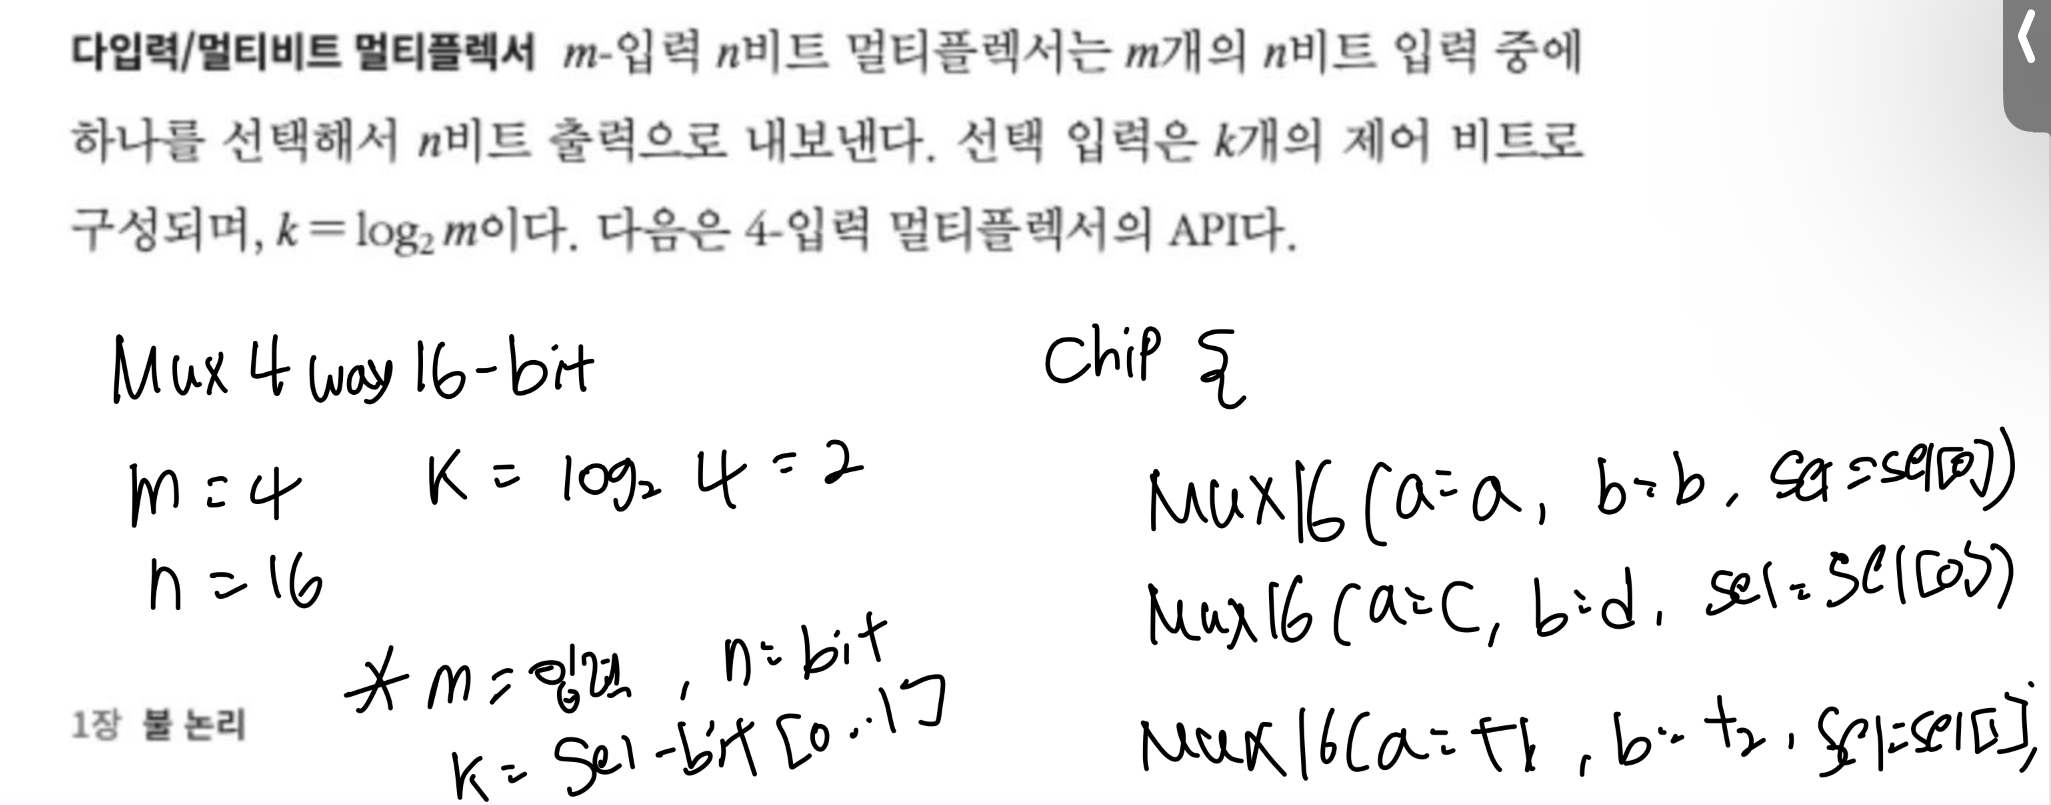 다입력/멀티비트 멀티플렉서 m-입력 n비트 멀티플렉서는 m개의 n비트 입력 중에
하나를 선택해서 n비트 출력으로 내보낸다. 선택 입력은 k개의 제어 비트로
구성되며, k = log₂ m이다. 다음은 4-입력 멀티플렉서의 API다.
Mux 4 way 16-bit
m = 4 K = log₂ 4 = 2
n = 16
* m = 입력, n = bit
K = Sel-bit [0..1]
1장 불 논리
Chip {
Mux16 (a=a, b=b, sel=sel[0])
Mux16 (a=c, b=d, sel=sel[0])
Mux16(a=t1, b=t2, sel=sel[1];